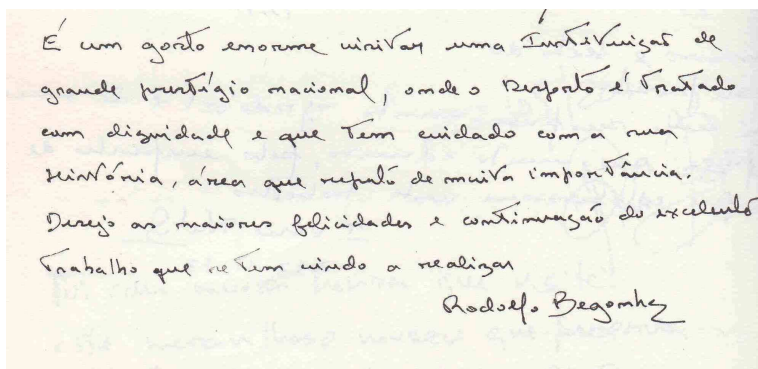 É um gosto enorme visitar uma Instituição de
grande prestígio nacional, onde o Desporto é tratado
com dignidade e que tem cuidado com a sua
História, área que reputo de muita importância.
Desejo as maiores felicidades e continuação do excelente
trabalho que se tem vindo a realizar
Rodolfo Begonha